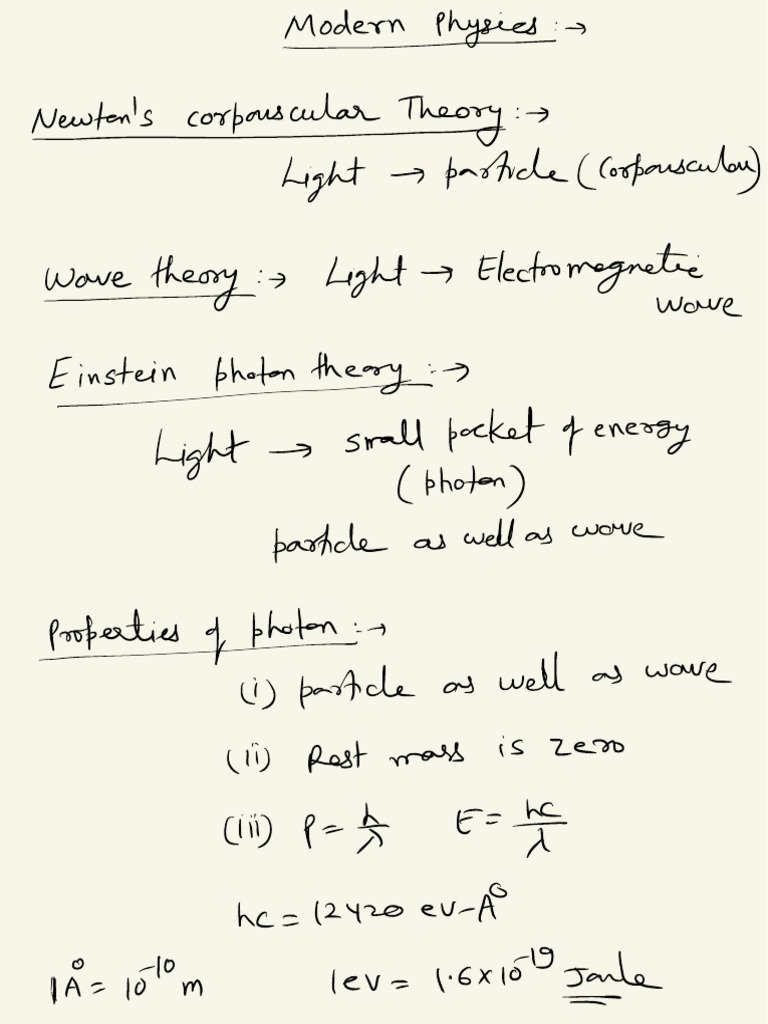 Modern Physics :→
Newton's corpouscular Theory :→
Light → particle (corpouscular)
Wave theory :→ Light → Electromagnetic
wave
Einstein photon theory :→
Light → small packet of energy
(photon)
particle as well as wave
Properties of photon :→
(i) particle as well as wave
(ii) Rest mass is zero
(iii) P = h/λ E = hc/λ
hc = 12420 ev-A°
1Å = 10⁻¹⁰ m 1ev = 1.6×10⁻¹⁹ Joule